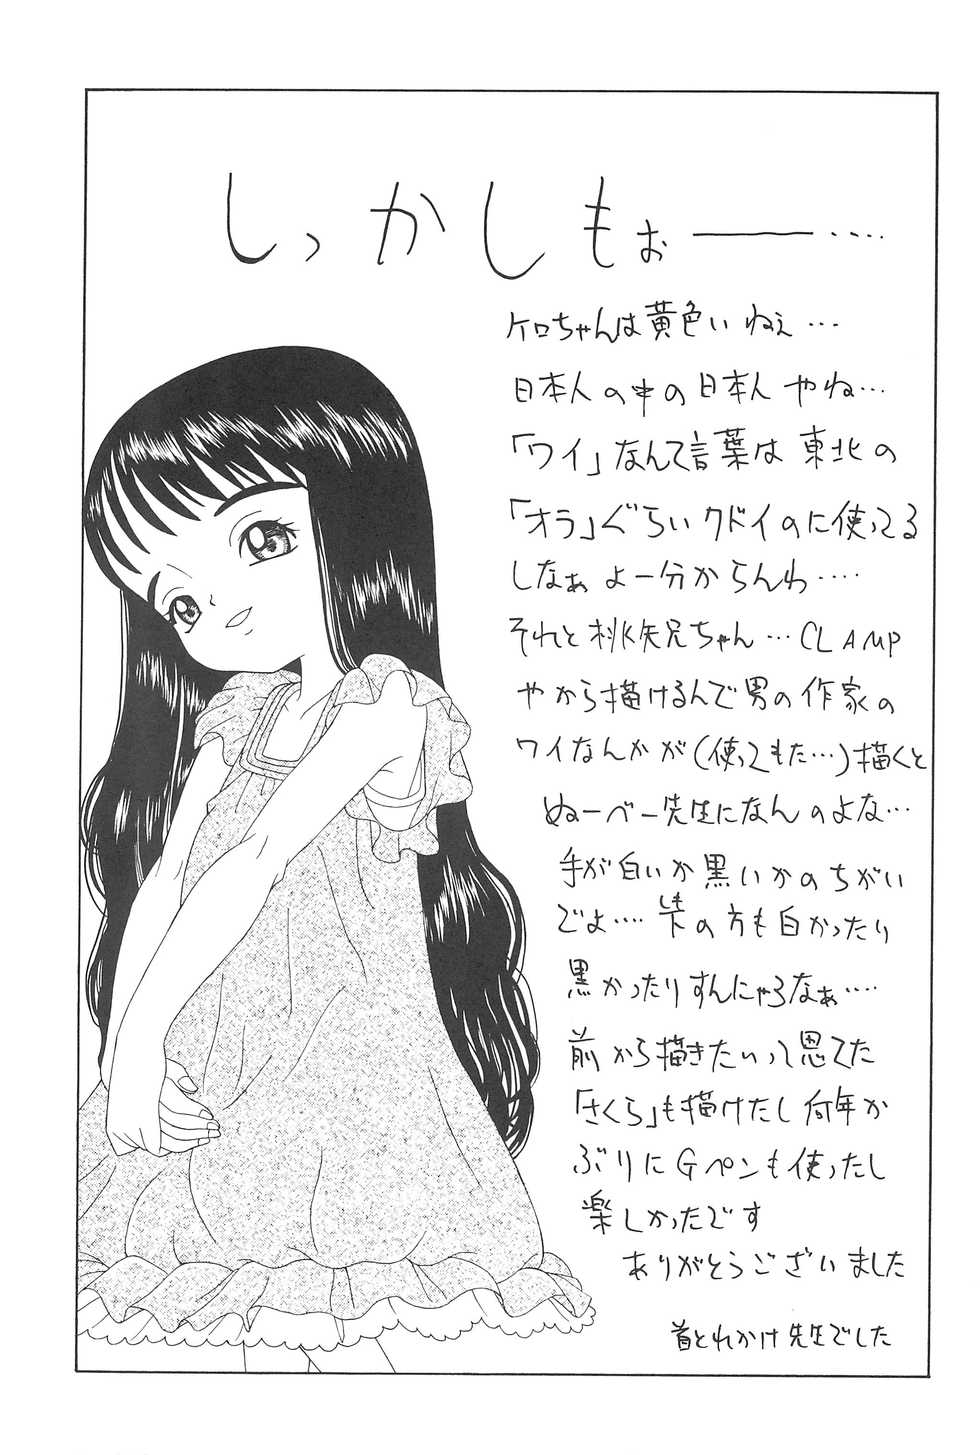 しっかしもぉ――‥‥
ケロちゃんは黄色いねぇ…
日本人の中の日本人やね…
「ワイ」なんて言葉は東北の
「オラ」ぐらいクドイのに使ってる
しなぁよー分からんわ‥‥
それと桃矢兄ちゃん…CLAMP
やから描けるんで男の作家の
ワイなんかが(使ってもた…)描くと
ぬーべー先生になんのよな…
手が白いか黒いかのちがい
でよ‥‥下の方も白かったり
しも
黒かったりすんにゃろなぁ‥‥
前から描きたいって思てた
「さくら」も描けたし何年か
ぶりにGペンも使ったし
楽しかったです
ありがとうございました
首とれかけ先生でした